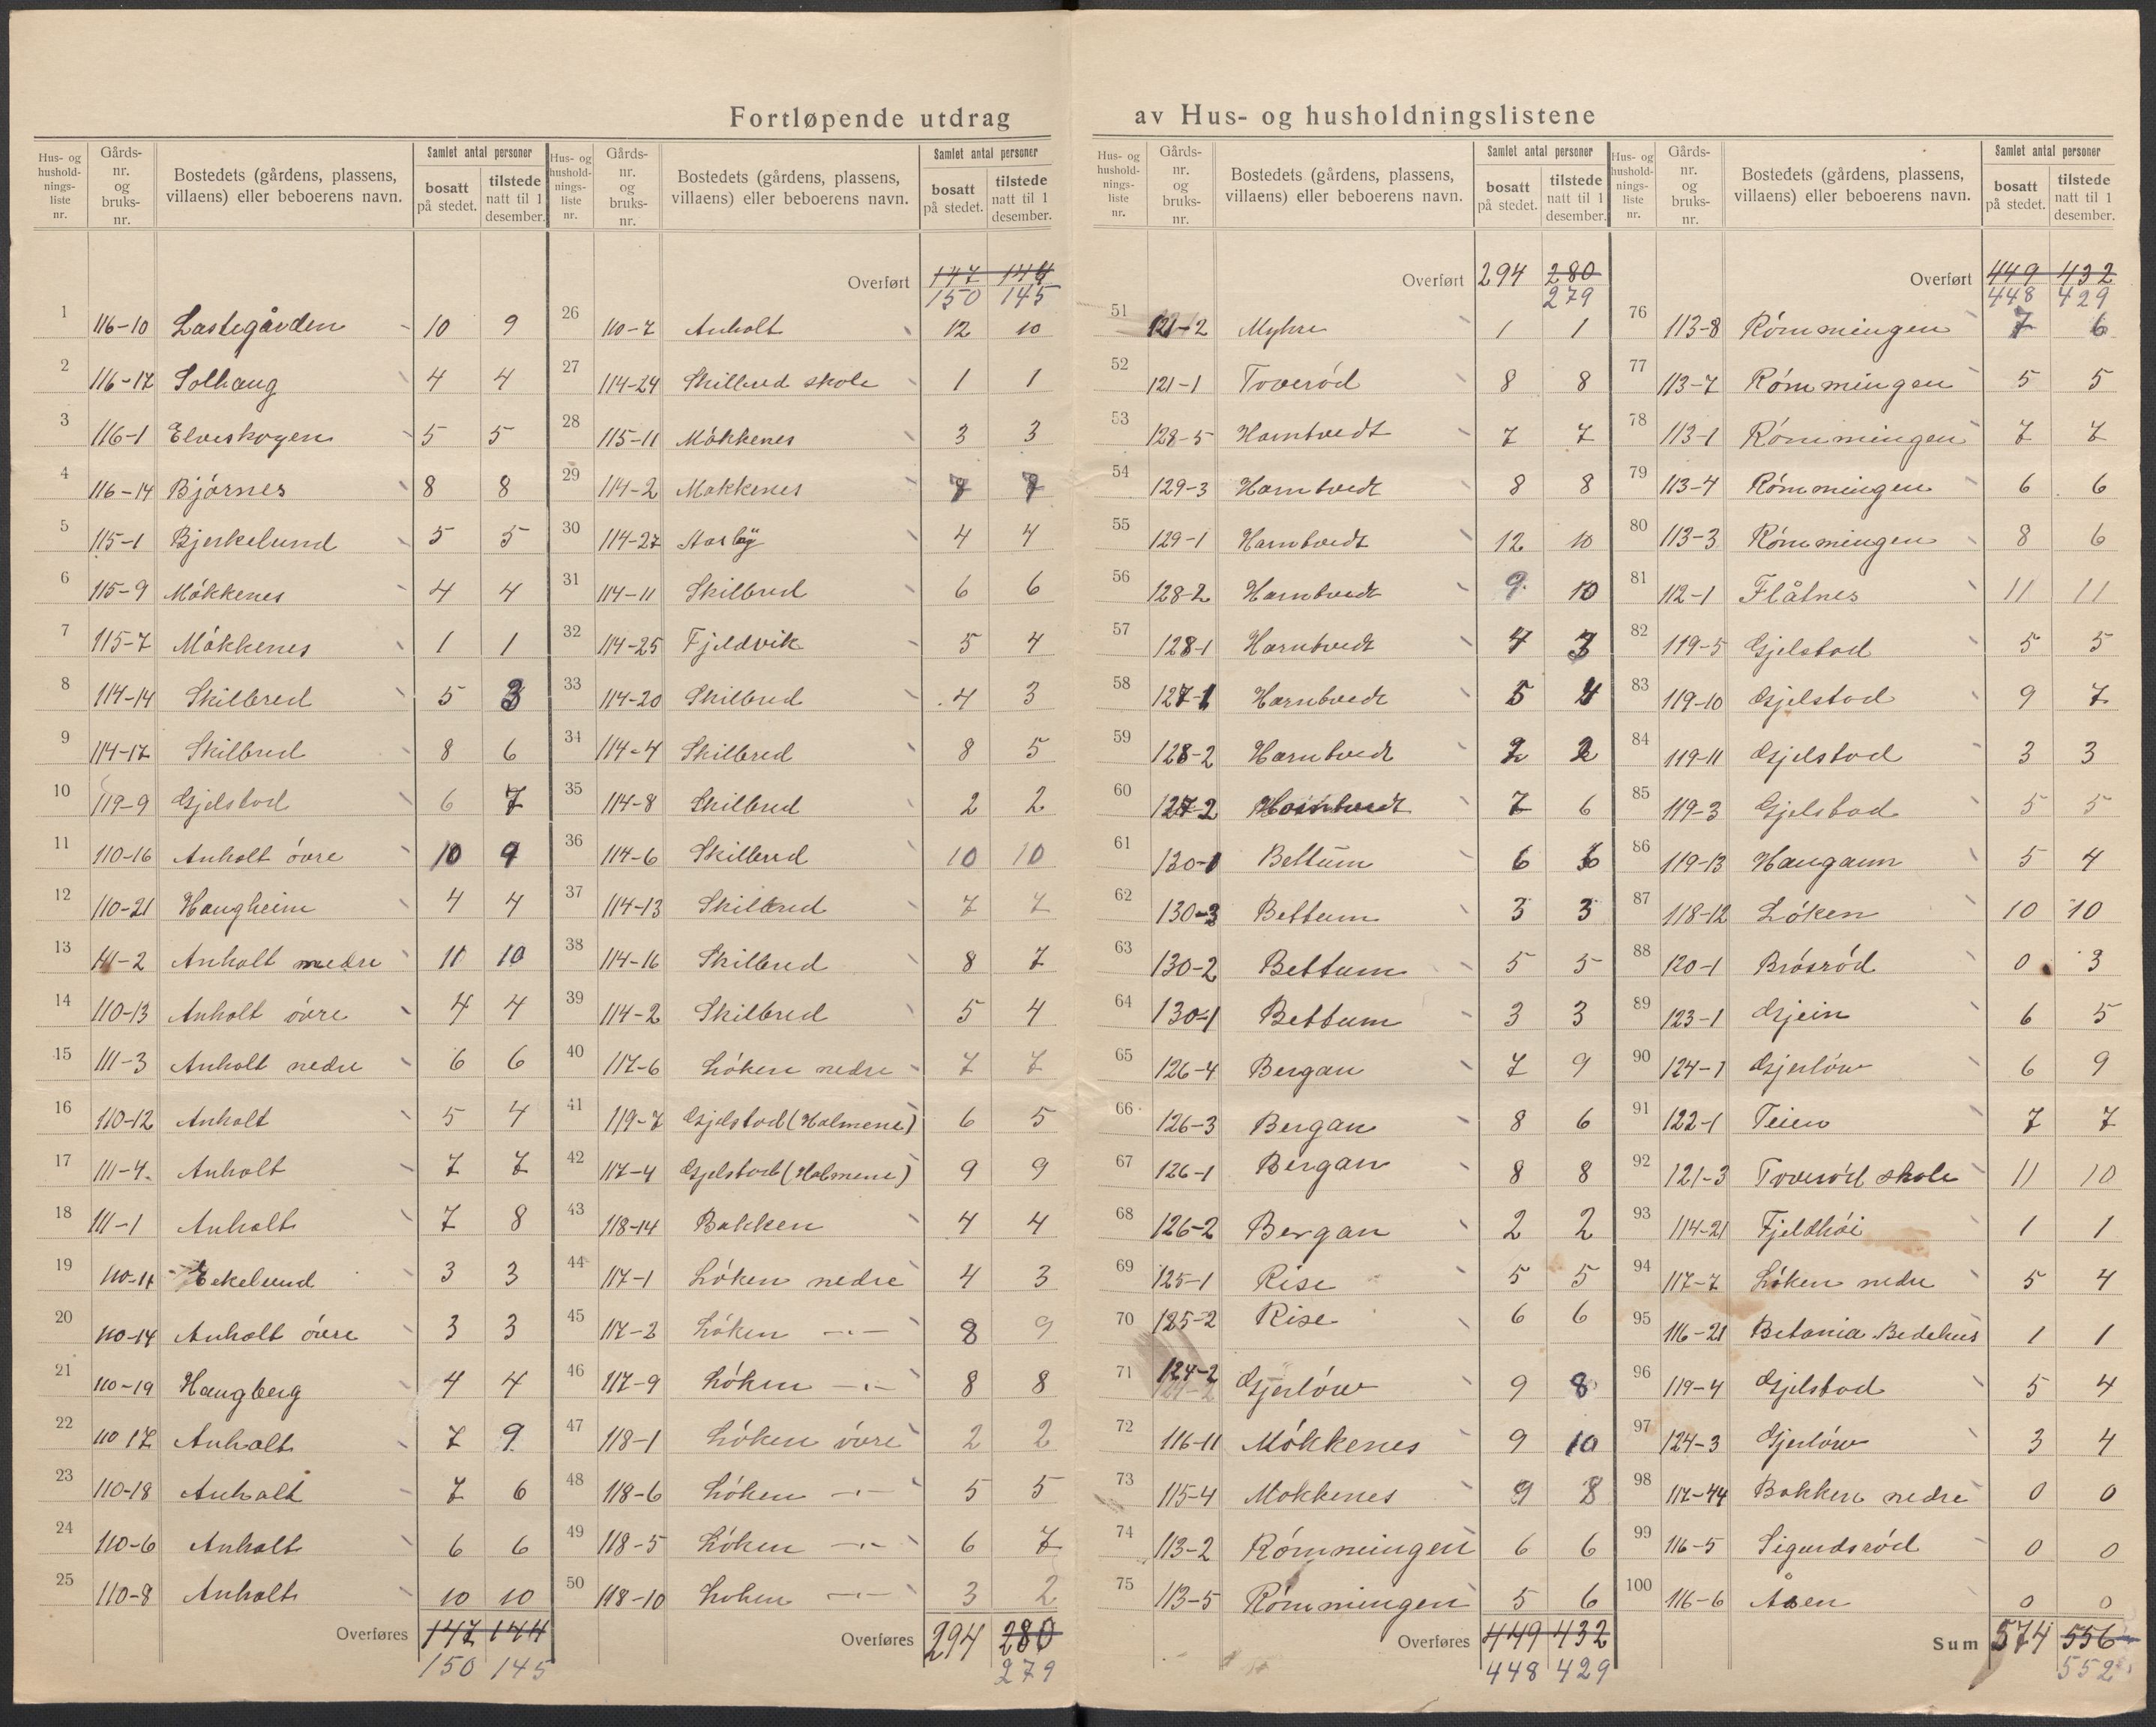 Fortløpende utdrag av Hus- og husholdningslistene
Hus- og husholdnings-liste nr. | Gårds-nr. og bruks-nr. | Bostedets (gårdens, plassens, villaens) eller beboerens navn. | Samlet antal personer: bosatt på stedet. | tilstede natt til 1 desember.
1 116-10 Lastegården 10 9
2 116-17 Solhaug 4 4
3 116-1 Elveskogen 5 5
4 116-14 Bjørnes 8 8
5 115-1 Bjerkelund 5 5
6 115-9 Møkkenes 4 4
7 115-7 Møkkenes 1 1
8 114-14 Skilbred 5 3
9 114-17 Skilbred 8 6
10 119-9 Gjelstad 6 7
11 110-16 Anholt övre 10 9
12 110-21 Haugheim 4 4
13 111-2 Anholt nedre 11 10
14 110-13 Anholt övre 4 4
15 111-3 Anholt nedre 6 6
16 110-12 Anholt 5 4
17 111-4 Anholt 7 7
18 111-1 Anholt 7 8
19 110-11 Ekelund 3 3
20 110-14 Anholt övre 3 3
21 110-19 Haugberg 4 4
22 110 17 Anholt 7 9
23 110-18 Anholt 7 6
24 110-6 Anholt 6 6
25 110-8 Anholt 10 10
Overføres 147 144
150 145
Overført 147 144
150 145
26 110-7 Anholt 12 10
27 114-24 Skilbred skole 1 1
28 115-11 Møkkenes 3 3
29 114-2 Møkkenes 7 7
30 114-27 4 4
31 114-11 Skilbred 6 6
32 114-25 Fjeldvik 5 4
33 114-20 Skilbred 4 3
34 114-4 Skilbred 8 5
35 114-8 Skilbred 2 2
36 114-6 Skilbred 10 10
37 114-13 Skilbred 7 7
38 114-16 Skilbred 8 7
39 114-2 Skilbred 5 4
40 117-6 Løken nedre 7 7
41 119-7 Gjelstad (Holmene) 6 5
42 117-4 Gjelstad (Holmene) 9 9
43 118-14 Bakken 4 4
44 117-1 Løken nedre 4 3
45 117-2 Løken -"- 8 9
46 117-9 Løken -"- 8 8
47 118-1 Løken övre 2 2
48 118-6 Løken -"- 5 5
49 118-5 Løken -"- 6 7
50 118-10 Løken -"- 3 2
Overføres 294 280
279
Overført 294 280
279
51 121-2 Myhre 1 1
52 121-1 Toverød 8 8
53 128-5 Horntvedt 7 7
54 129-3 Horntvedt 8 8
55 129-1 Horntvedt 12 10
56 128-2 Horntvedt 9 10
57 128-1 Horntvedt 4 3
58 127-1 Horntvedt 5 4
59 128-2 Horntvedt 2 2
60 127-2 Horntvedt 7 6
61 130-1 Bettum 6 6
62 130-3 Bettum 3 3
63 130-2 Bettum 5 5
64 130-1 Bettum 3 3
65 126-4 Bergan 7 9
66 126-3 Bergan 8 6
67 126-1 Bergan 8 8
68 126-2 Bergan 2 2
69 125-1 Rise 5 5
70 125-2 Rise 6 6
71 124-2 Gjerløw 9 8
72 116-11 Møkkenes 9 10
73 115-4 Møkkenes 9 8
74 113-2 Rømmingen 6 6
75 113-5 Rømmingen 5 6
Overføres 449 432
448 429
Overført 449 432
448 429
76 113-8 Rømmingen 7 6
77 113-7 Rømmingen 5 5
78 113-1 Rømmingen 7 7
79 113-4 Rømmingen 6 6
80 113-3 Rømmingen 8 6
81 112-1 Flåtnes 11 11
82 119-5 Gjelstad 5 5
83 119-10 Gjelstad 9 7
84 119-11 Gjelstad 3 3
85 119-3 Gjelstad 5 5
86 119-13 Haugann 5 4
87 118-12 Løken 10 10
88 120-1 Brøsrød 0 3
89 123-1 Gjein 6 5
90 124-1 Gjerløw 6 9
91 122-1 Teien 7 7
92 121-3 Toverød skole 11 10
93 114-21 Fjeldhøi 1 1
94 117-7 Løken nedre 5 4
95 116-21 Betania Bedehus 1 1
96 119-4 Gjelstad 5 4
97 124-3 Gjerløw 3 4
98 117-44 Bakken nedre 0 0
99 116-5 Sigurdsrød 0 0
100 116-6 Åsen 0 0
Sum 574 556
552